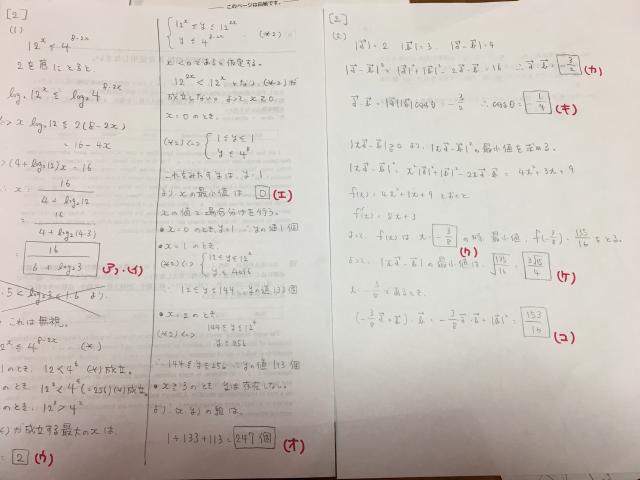 このページは白紙です。
[2]
(1)
12^x ≦ 4^{8-2x}
2を底にとると
log₂12^x ≦ log₂4^{8-2x}
⇔ x log₂12 ≦ 2(8-2x)
= 16-4x
⇔ (4+log₂12)x = 16
∴ x = 16/(4+log₂12)
= 16/(4+log₂(4·3))
= 16/(6+log₂3) (ア)・(イ)
1.5 < log₂3 < 1.6 より
これは無視。
12^x ≦ 4^{8-2x} (*)
1のとき、12 < 4^6 (*)成立。
のとき、12² < 4^4 (=256) (*)成立。
のとき、12³ > 4²
(*)が成立する最大のxは
= 2 (ウ)
{ 12^x ≦ y ≦ 12^{2x}
y ≦ 4^{8-2x} (*2)
x<0であると仮定する。
12^{2x} < 12^x となり、(*2)が
成立しない。よって x≧0
x=0のとき、
(*2) ⇔ { 1≦y≦1
y≦4^8
これをみたすyは、y=1
より xの最小値は 0 (エ)
xの値で場合分けを行う。
• x=0のとき、y=1 ∴yの値1個
• x=1のとき、
(*2) ⇔ { 12≦y≦12²
y≦4096
12≦y≦144 ∴yの値133個
• x=2のとき、
(*2) ⇔ 144≦y≦12^4
y≦256
∴144≦y≦256 ∴yの値113個
• x≧3のとき yは存在しない。
より (x,y)の組は、
1+133+113 = 247個 (オ)
[2]
(2)
|a|=2 |b|=3 |a-b|=4
|a-b|² = |a|²+|b|²-2a·b = 16 ∴a·b = -3/2 (カ)
a·b = |a||b|cosθ = -3/2 ∴cosθ = -1/4 (キ)
|xa-b|≧0 より、|xa-b|²の最小値を求める。
|xa-b|² = x²|a|²+|b|²-2xa·b = 4x²+3x+9
f(x) = 4x²+3x+9 とおくと
f'(x) = 8x+3
よって f(x)は x = -3/8 の時 最小値 f(-3/8) = 135/16 をとる。
(ク)
よって |xa-b|の最小値は √(135/16) = 3√15/4 (ケ)
(-3/8 a+b)·b = -3/8 a·b+|b|² = 153/16 (コ)